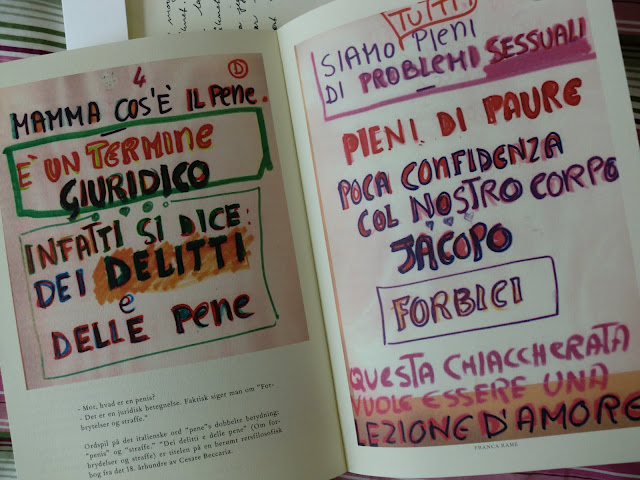 4
D
MAMMA COS'È IL PENE.
E' UN TERMINE
GIURIDICO
INFATTI SI DICE:
DEI DELITTI
e
DELLE PENE
- Mor, hvad er en penis?
- Det er en juridisk betegnelse. Faktisk siger man om "For-
brytelser og straffe."
Ordspil på det italienske ord "pene"s dobbelte betydning:
"penis" og "straffe." "Dei delitti e delle pene" (Om for-
brydelser og straffe) er titelen på en berømt retsfilosofisk
bog fra det 18. århundre av Cesare Beccaria.
TUTTI
SIAMO PIENI
DI PROBLEMI SESSUALI
PIENI DI PAURE
POCA CONFIDENZA
COL NOSTRO CORPO
JACOPO
FORBICI
QUESTA CHIACCHERATA
VUOLE ESSERE UNA
LEZIONE D'AMORE
FRANCA RAME